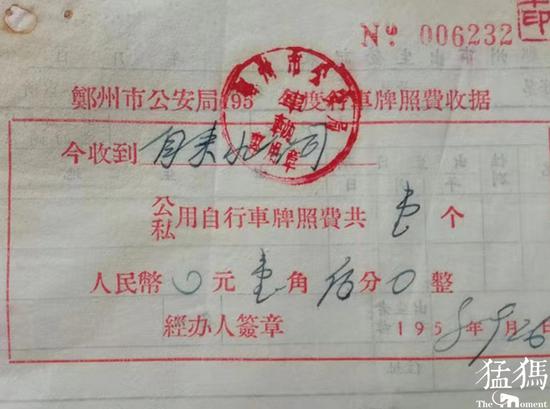 № 006232
鄭州市公安局195 年度行車牌照費收据
今收到 自来水公司
公私用自行車牌照費共 壹 个
人民幣 0 元 壹 角 伍 分 0 整
經办人簽章 1958年9月26日
猛獁
The Moment